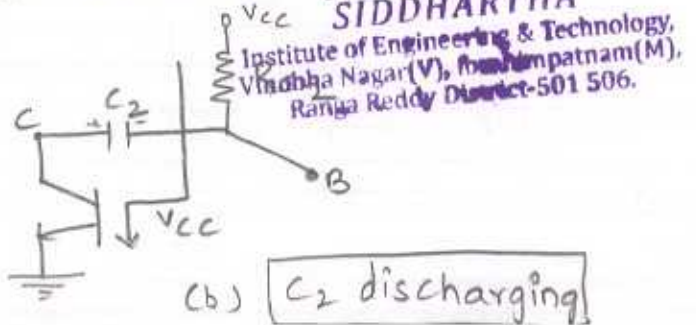 VCC
SIDDHARTHA
Institute of Engineering & Technology,
Vinobha Nagar(V), Ibrahimpatnam(M),
Ranga Reddy District-501 506.
C
C2
+
-
B
VCC
(b) C2 discharging